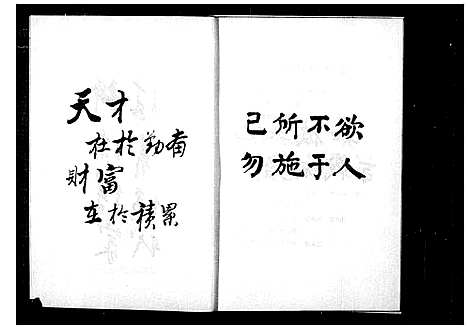 天才
在於勤奮
財富
在於積累
己所不欲
勿施于人